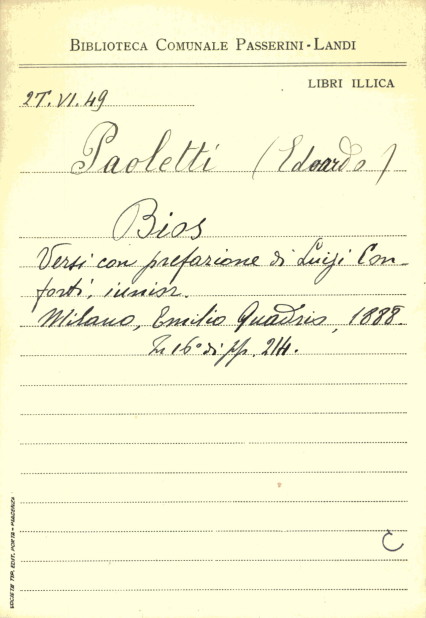 BIBLIOTECA COMUNALE PASSERINI-LANDI
LIBRI ILLICA
27.VI.49
Paoletti (Edoardo)
Bios
Versi con prefazione di Luigi Con-
forti, iunior.
Milano, Emilio Quadrio, 1888.
In 16° di pp. 214.
C
SOCIETÀ TIP. EDIT. PORTA - PIACENZA